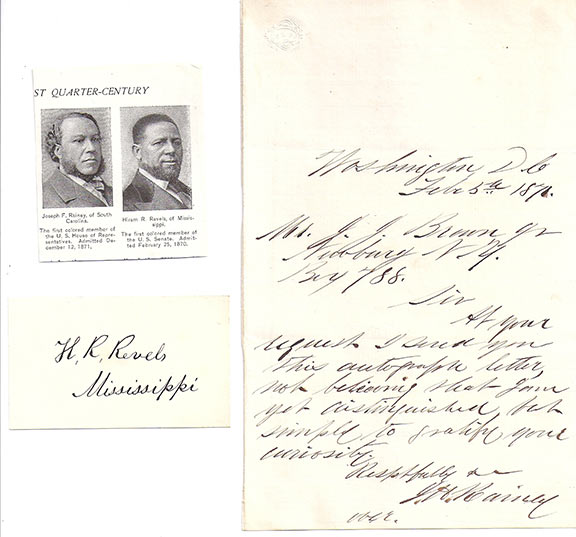 ST QUARTER-CENTURY
Joseph F. Rainey, of South
Carolina.
The first colored member of
the U. S. House of Repre-
sentatives. Admitted De-
cember 12, 1871,
Hiram R. Revels, of Missis-
sippi.
The first colored member of
the U. S. Senate. Admit-
ted February 25, 1870.
H. R. Revels
Mississippi
Washington D C
Feb 5th 1871.
Mr. J. J. Brown Jr
Newburg N.Y.
Box 788.
Sir
At your
request I send you
this autograph letter,
not believing that I am
yet distinguished, but
simply to gratify your
curiosity.
Respctfully &c
J H. Rainey
over.